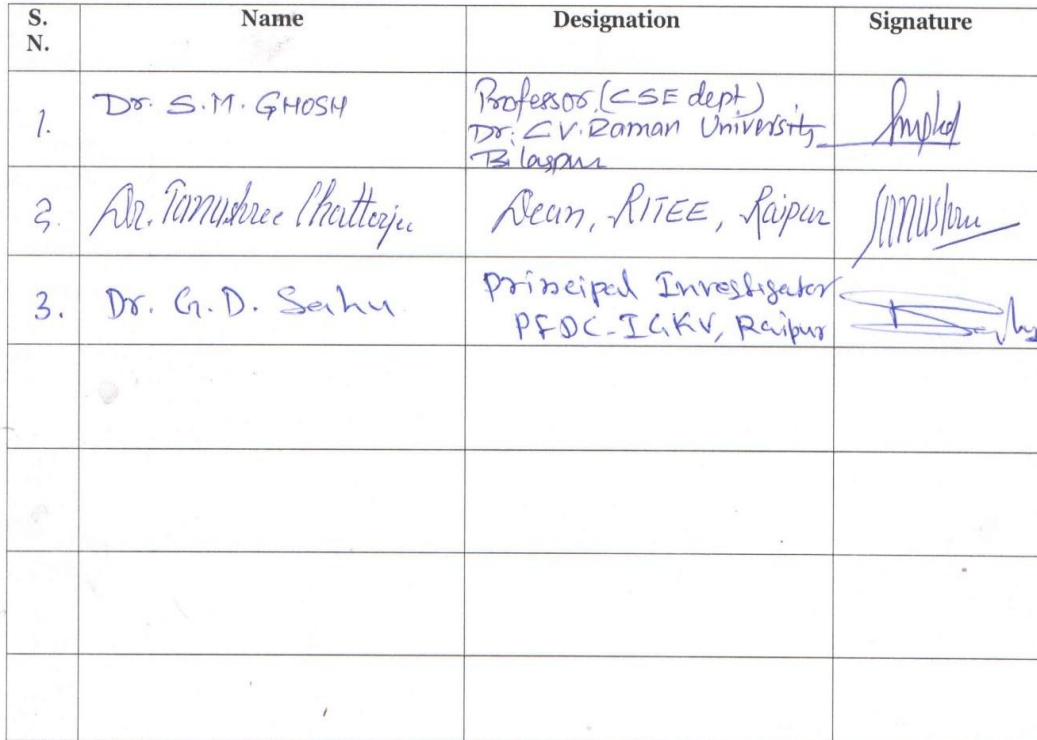 S. N. Name Designation Signature
1. Dr. S.M. GHOSH Professor (CSE dept)
Dr. C.V. Raman University
Bilaspur
2. Dr. Tanushree Chatterjee Dean, RITEE, Raipur Tanushree
3. Dr. G.D. Sahu Principal Investigator
PFDC-IGKV, Raipur